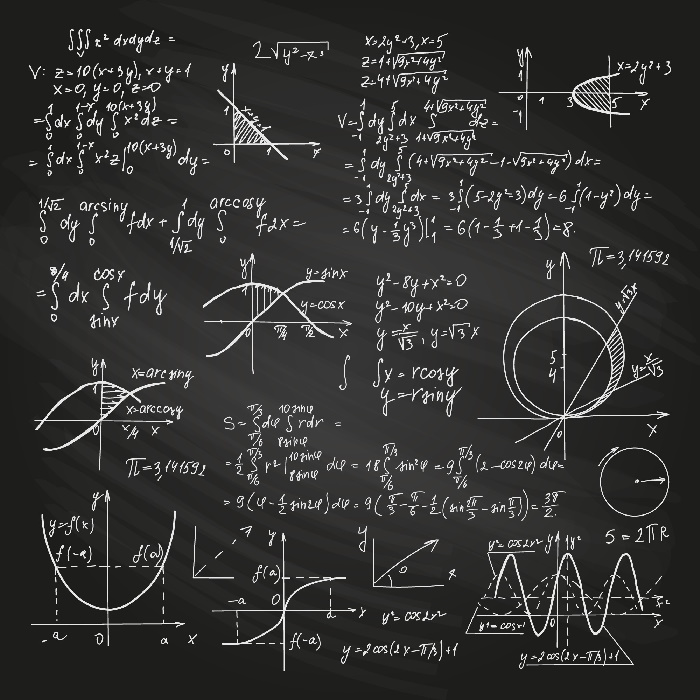 ∭ x² dxdydz =
V: z=10(x+3y), x+y=1
x=0, y=0, z=0
=∫₀¹dx∫₀^{1-x}dy∫₀^{10(x+3y)} x²dz =
=∫₀¹dx∫₀^{1-x} x²z|₀^{10(x+3y)} dy=
2√y²-x³
y
1
1
x
0
x=2y²+3, x=5
z=1+√9x²+4y²
z=4+√9x²+4y²
V=∫₋₁¹dy∫_{2y²+3}^{5}dx∫_{1+√9x²+4y²}^{4+√9x²+4y²}dz=
=∫₋₁¹dy∫_{2y²+3}^{5}(4+√9x²+4y²-1-√9x²+4y²)dx=
=3∫₋₁¹dy∫_{2y²+3}^{5}dx = 3∫₋₁¹(5-2y²-3)dy=6∫₋₁¹(1-y²)dy=
=6(y-⅓y³)|₋₁¹ = 6(1-⅓+1-⅓)=8
y
1
-1
1
3
5
x
x=2y²+3
∫₀^{1/√2}dy∫₀^{arcsiny} fdx+∫_{1/√2}^{1}dy∫₀^{arccosy} fdx=
=∫₀^{π/4}dx∫_{sinx}^{cosx} fdy
y
y=sinx
y=cosx
π/4
π/2
x
0
y²-8y+x²=0
y²-10y+x²=0
y=x/√3, y=√3x
∫
∫x=rcosy
y=rsiny
π=3,141592
y
y=√3x
y=x/√3
5
4
0
x
y
x=arcsiny
x=arccosy
1
0
π/4
x
π=3,141592
S=∫_{π/6}^{π/3}dφ∫_{8sinφ}^{10sinφ}rdr =
=½∫_{π/6}^{π/3} r²|_{8sinφ}^{10sinφ} dφ = 18∫_{π/6}^{π/3}sin²φ=9∫_{π/6}^{π/3}(2-cos2φ)dφ=
=9(φ-½sin2φ)dφ=9(π/3-π/6-½(sin2π/3-sinπ/3))=3π/2
y
y=f(x)
f(-a)
f(a)
-a
0
a
x
y
f(a)
-a
0
a
x
f(-a)
y
x
y²=cos2x²
y=2cos(2x-π/3)+1
S=2πR
y²=cos2x²
y
x
0
y=2cos(2x-π/3)+1